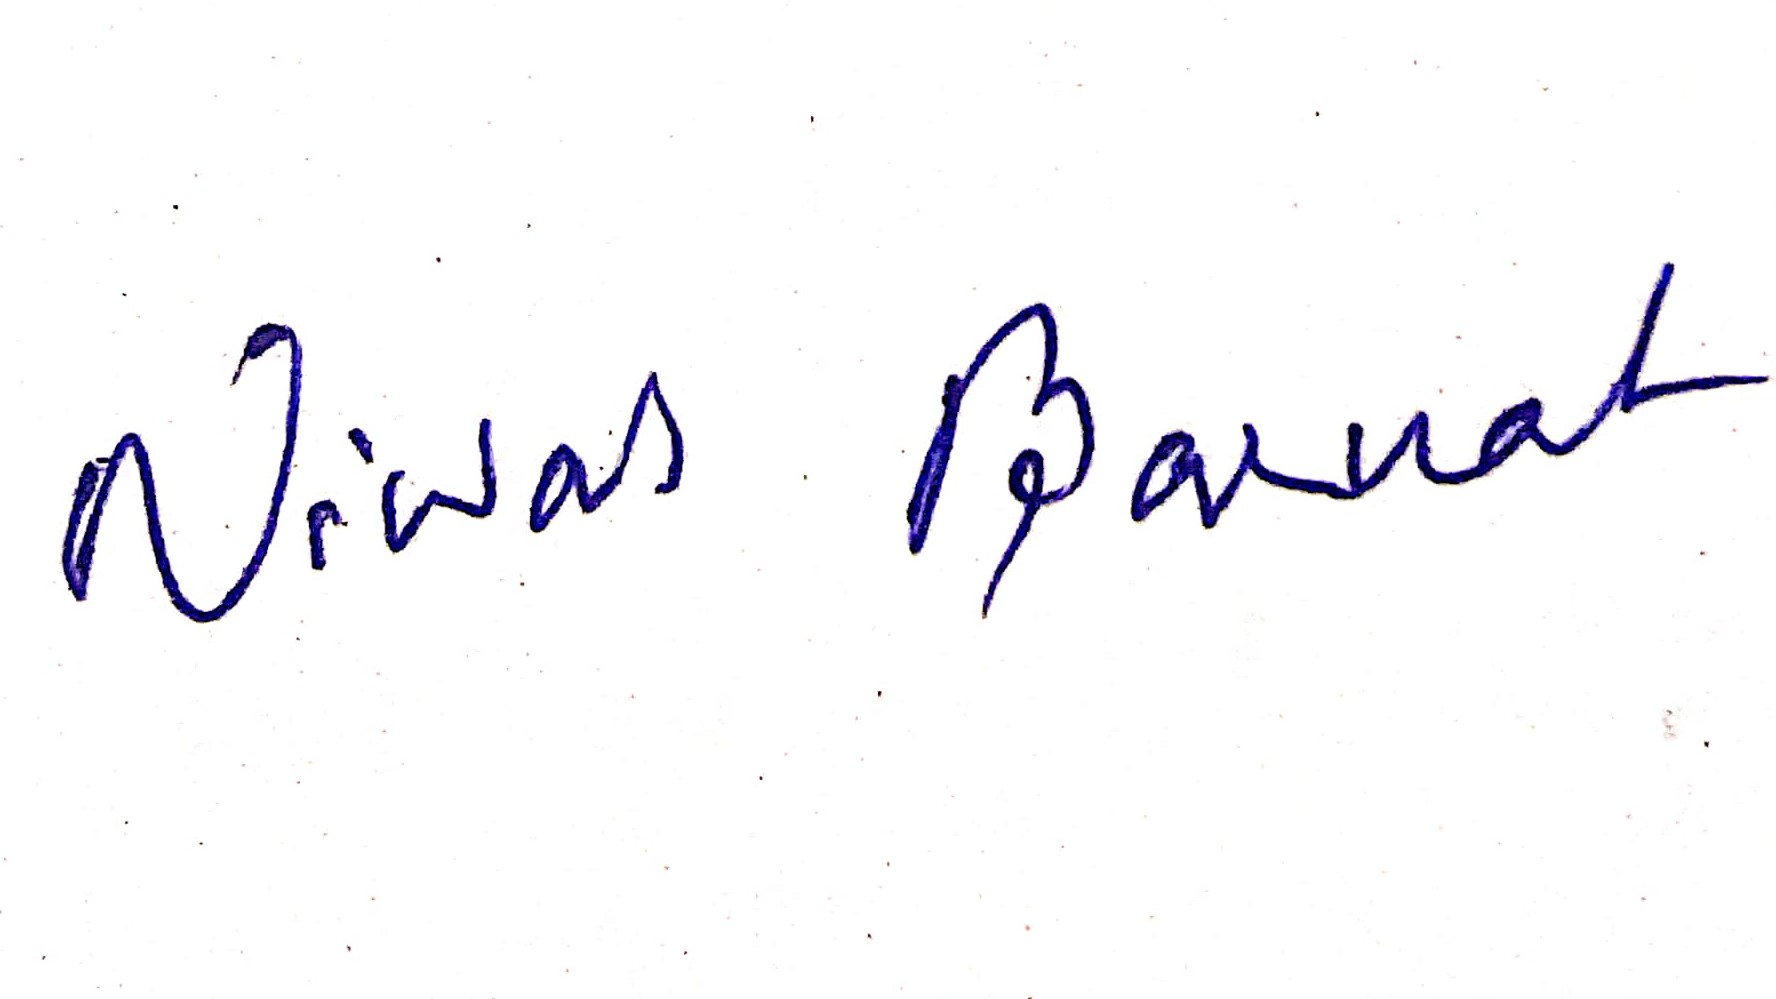 Niwas Barnat